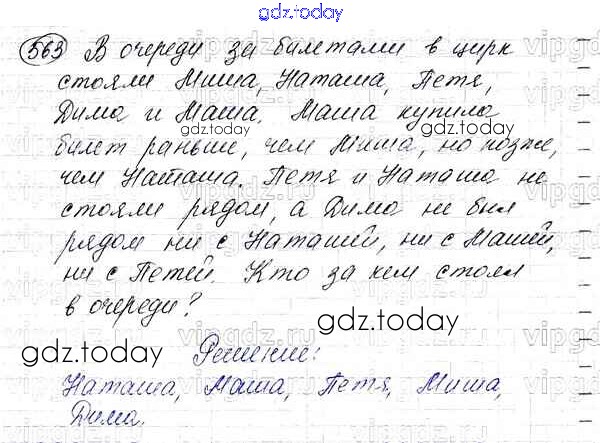 gdz.today
563 В очереди за билетами в цирк
стояли Миша, Наташа, Петя,
Дима и Маша. Маша купила
gdz.today gdz.today
билет раньше, чем Миша, но позже,
чем Наташа. Петя и Наташа не
стояли рядом, а Дима не был
рядом ни с Наташей, ни с Машей,
ни с Петей. Кто за кем стоял
в очереди?
gdz.today
gdz.today
Решение:
Наташа, Маша, Петя, Миша,
Дима.